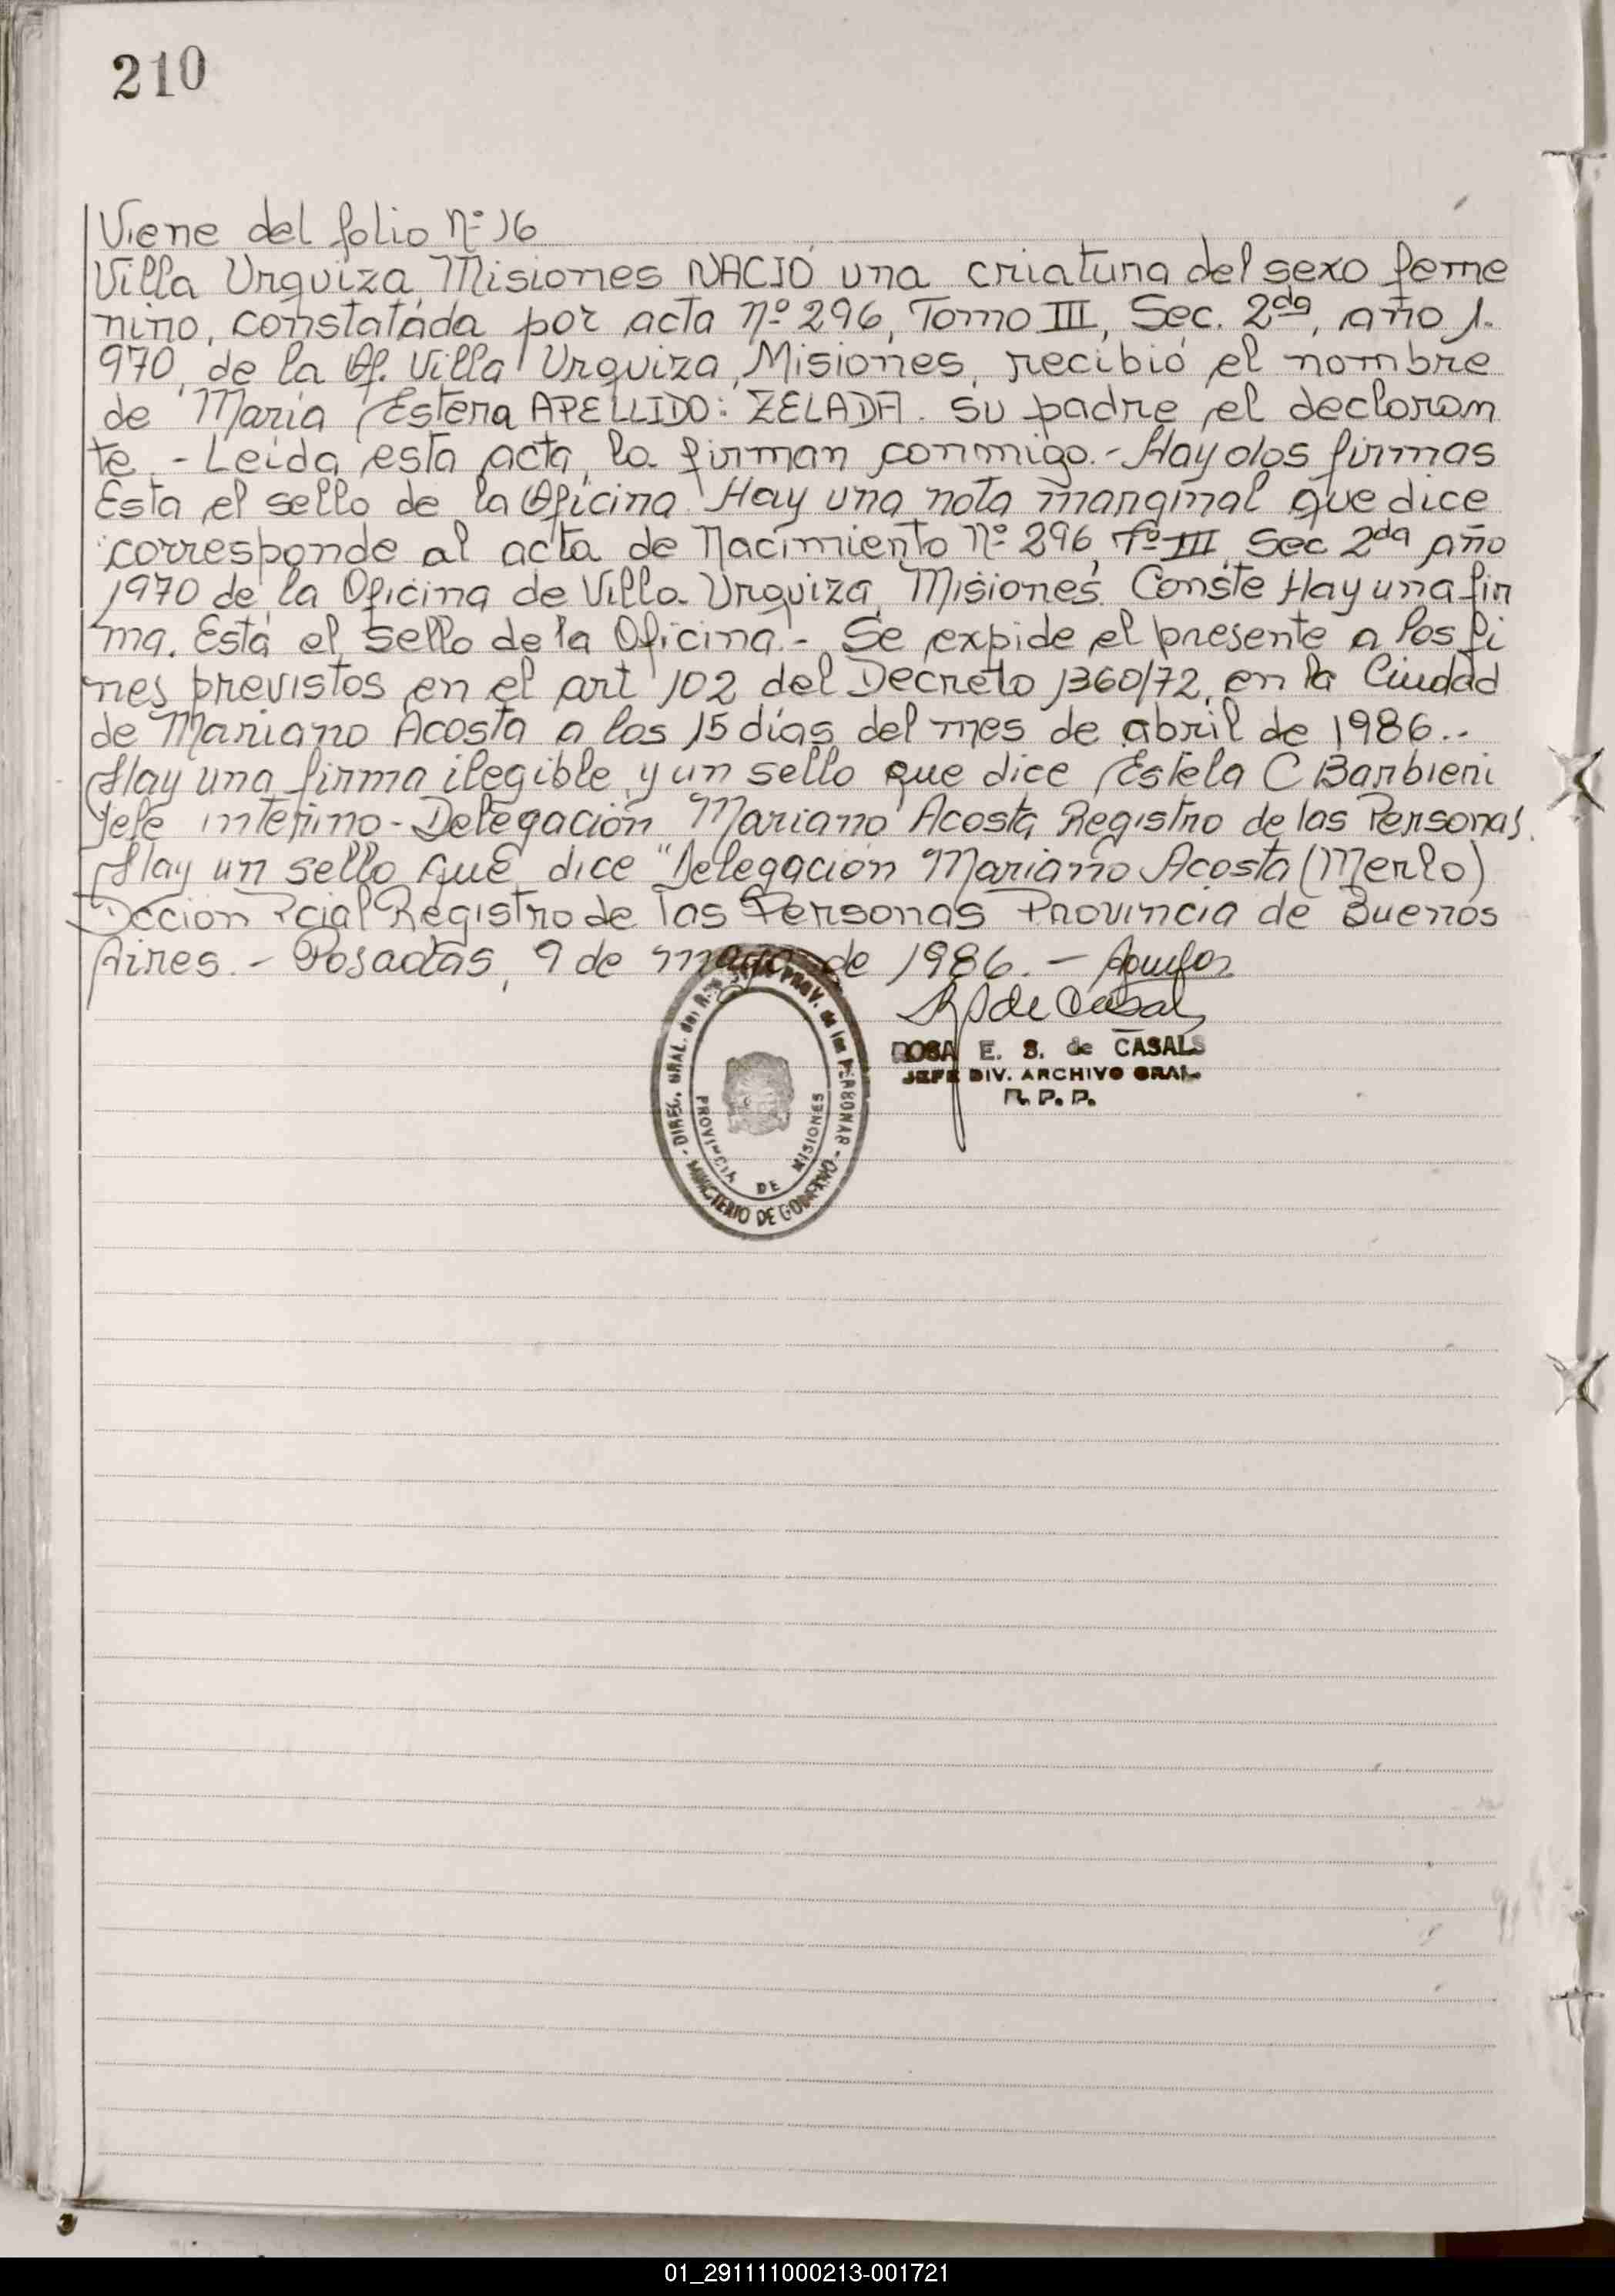 210
Viene del folio Nº 16
Villa Urquiza Misiones NACIÓ una criatura del sexo feme
nino, constatada por acta nº 296, Tomo III, Sec. 2da, año 1.
970, de la Of. Villa Urquiza, Misiones, recibió el nombre
de María Estera APELLIDO: ZELADA. su padre el declaran
te.- Leída esta acta, la firman conmigo.- Hay dos firmas
Esta el sello de la Oficina. Hay una nota marginal que dice
corresponde al acta de Nacimiento Nº 296, Tº III, Sec 2da año
1970 de la Oficina de Villa Urquiza, Misiones. Conste Hay una fir
ma. Está el sello de la Oficina.- Se expide el presente a los fi
nes previstos en el art 102 del Decreto 1360/72, en la Ciudad
de Mariano Acosta a los 15 días del mes de abril de 1986..
Hay una firma ilegible y un sello que dice Estela C Barbieri
Jefe interino - Delegación Mariano Acosta, Registro de las Personas.
Hay un sello que dice "Delegación Mariano Acosta (Merlo)
Dcción Pcial Registro de las Personas Provincia de Buenos
Aires.- Posadas, 9 de mayo de 1986.-
DIREC. GRAL. del PROV. de las PERSONAS
- MINISTERIO DE GOBIERNO -
PROVINCIA DE MISIONES
ROSA E. S. de CASALS
JEFE DIV. ARCHIVO GRAL.
R. P. P.
01_291111000213-001721